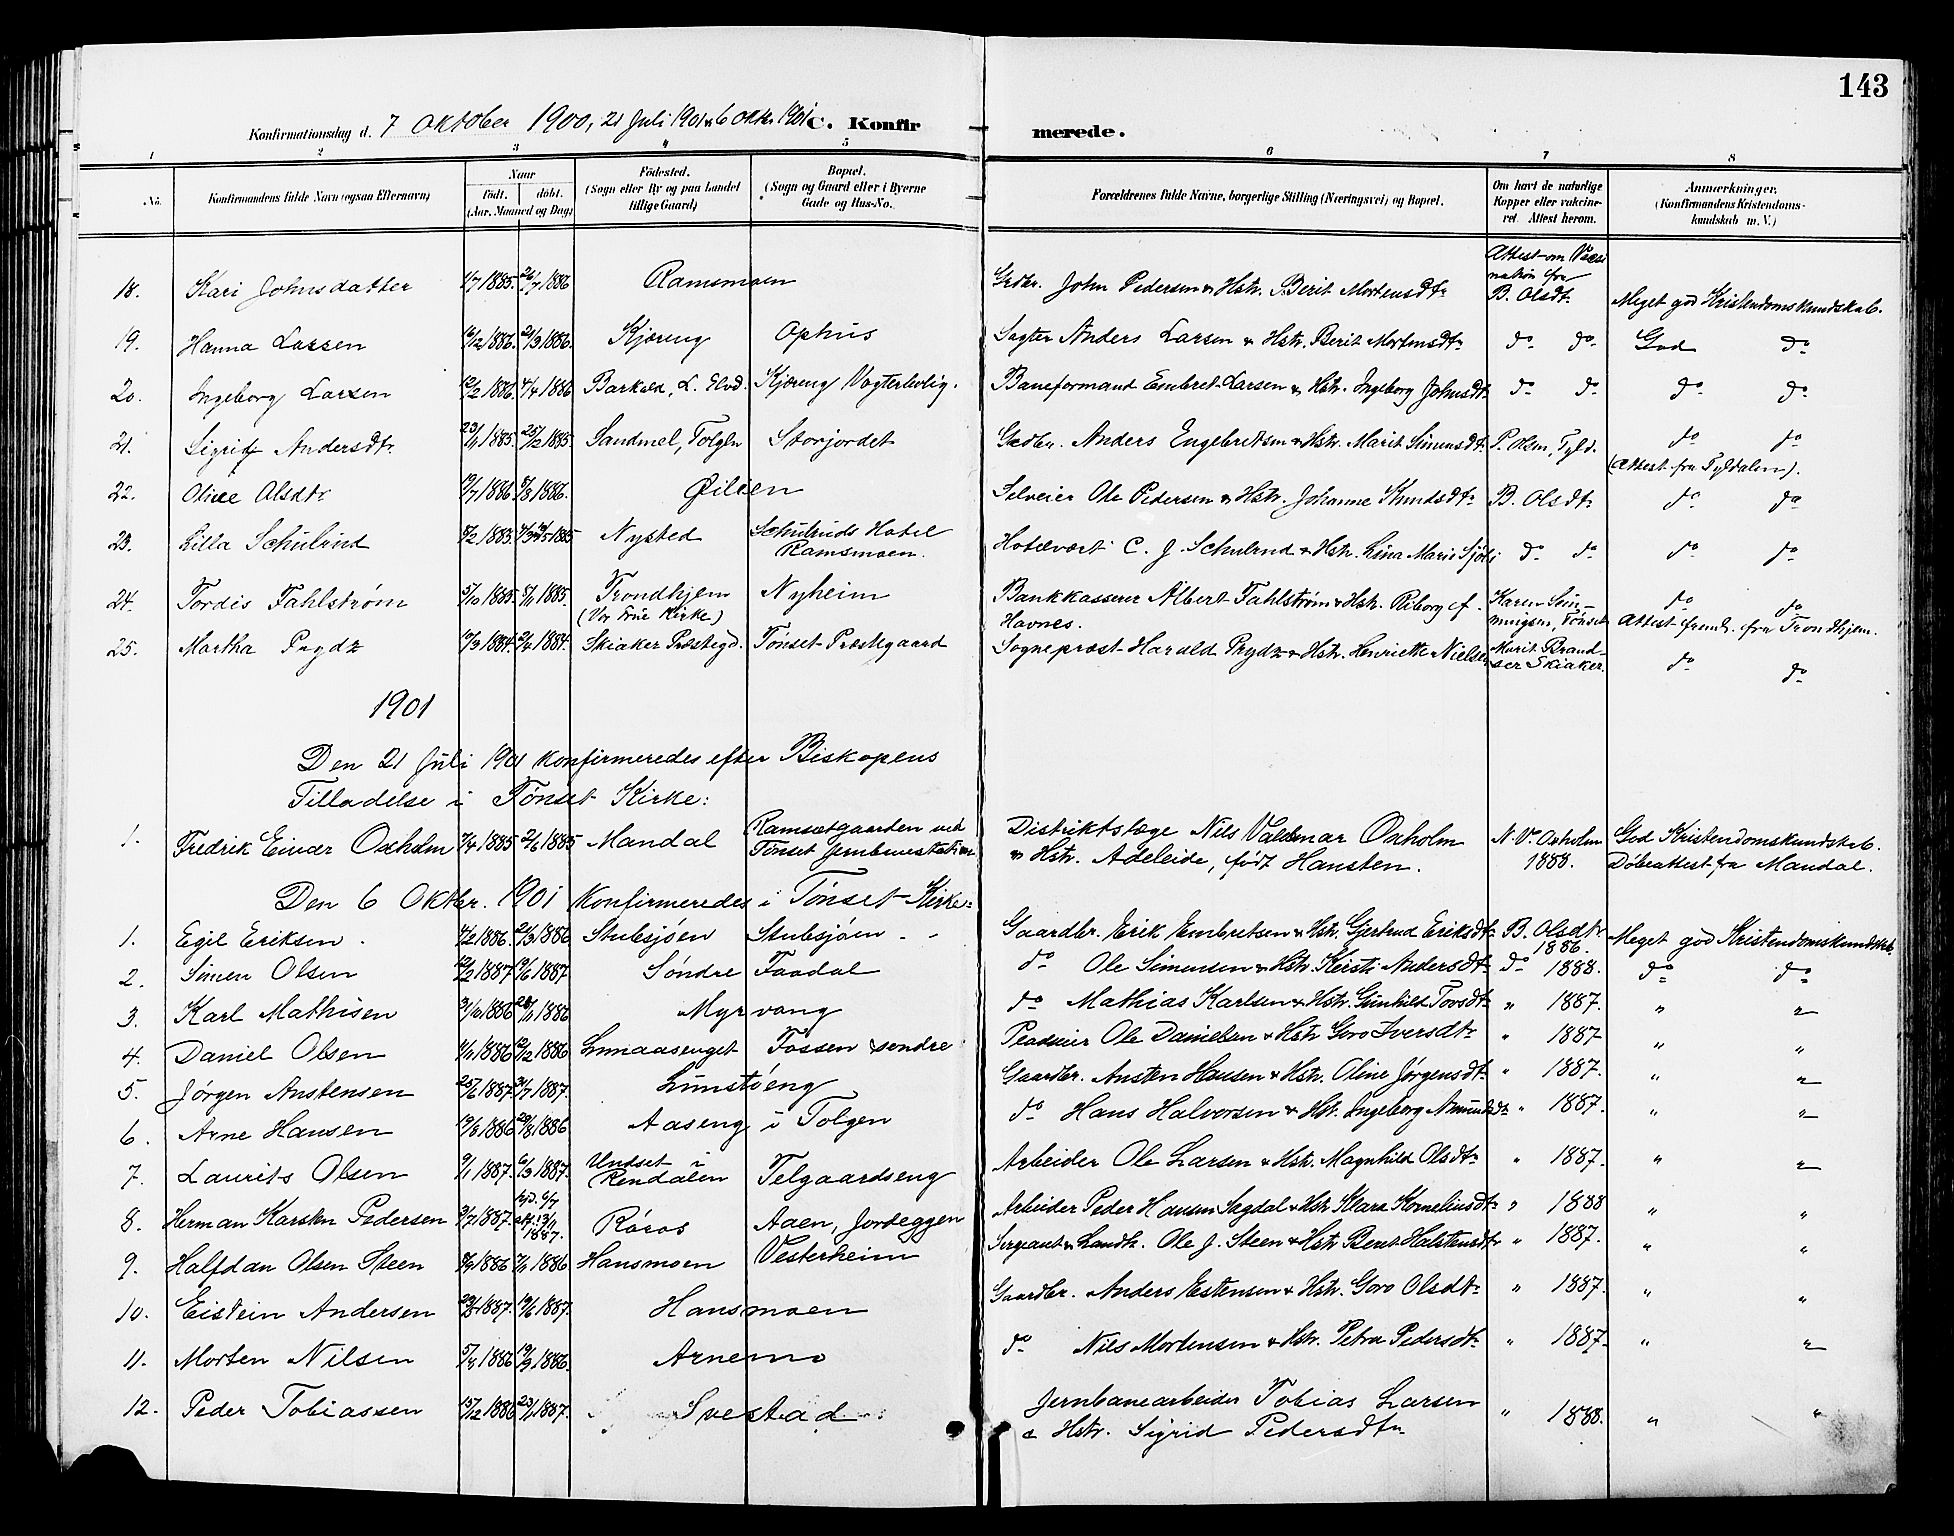 143
Konfirmationsdag d. 7 Oktober 1900, 21 Juli 1901 & 6 Oktbr 1901 C. Konfirmerede.
1 2 3 4 5 6 7 8
No. Konfirmandens fulde Navn (ogsaa Efternavn) Naar født. døbt. (Aar, Maaned og Dag) Födested. (Sogn eller By og paa Landet tillige Gaard) Bopæl. (Sogn og Gaard eller i Byerne Gade og Hus-No. Forældrenes fulde Navne, borgerlige Stilling (Næringsvei) og Bopæl. Om havt de naturlige Kopper eller vakcineret. Attest herom. Anmærkninger. (Konfirmandens Kristendomskundskab m. V.)
18. Kari Johnsdatter 1/7 1885. 26/7 1886 Ramsmoen Grdbr. John Pedersen & Hstr. Berit Mortensdtr Attest om Vaccination fra B. Olsdt. Meget god Kristendomskundskab.
19. Hanna Larsen 16/12 1886. 21/3 1886. Kjøreng Ophus Sagter Anders Larsen & Hstr. Berit Mortensdtr do do God do
20. Ingeborg Larsen 12/2 1886. 4/4 1886 Barkald, L. Elvd. Kjøreng Vogterbolig. Baneformand Embret Larsen & Hstr. Ingeborg Johnsdt. do do do do
21. Sigrid Andersdtr. 23/11 1885. 25/12 1885 Sandmel, Tolgen Storjordet Grdbr. Anders Engebretsen & Hstr. Marit Simensdtr P. Olsen, Tyld. do do
(Attest fra Tyldalen).
22. Olise Olsdtr 19/7 1886 8/8 1886. Øilien Selveier Ole Pedersen & Hstr. Johanne Knudsdtr B. Olsdtr. do do
23. Lilla Schulrud 8/2 1885. 1885 Nysted Schulruds Hotel Ramsmoen. Hotelvært C. J. Schulrud & Hstr. Lina Marie do do do do
24. Tordis Fahlstrøm 5/10 1885. 8/11 1885. Trondhjem (Vor Frue Kirke) Nyheim Bankkasserer Albert Fahlstrøm & Hstr. Riborg f. Havnes. Karen Tønset do do
Attest fremt. fra Trondhjem.
25. Martha Prydz 17/3 1884. 2/4 1884. Skiaker Præstegd. Tønset Præstegaard Sogneprest Harald Prydz & Hstr. Henriette Nielsen Marit Brandser Skiaker. do do
1901
Den 21 Juli 1901 konfirmeredes efter Biskopens
Tilladelse i Tønset Kirke:
1. Fredrik Einar Oxholm 7/4 1885 2/6 1885 Mandal Ramsetgaarden ved Tønset Jernbanestation Distriktslæge Nils Valdemar Oxholm & Hstr. Adeleide, født Hansten. N. V. Oxholm 1888. God Kristendomskundskab. Døbeattest fra Mandal.
Den 6 Oktbr. 1901 konfirmeredes i Tønset Kirke:
1. Egil Eriksen. 4/2 1886. 21/3 1886 Stubsjøen Stubsjøen Gaardbr. Erik Embretsen & Hstr. Gjertrud Eriksdtr B. Olsdtr 1886. Meget god Kristendomskundskab.
2. Simen Olsen 12/2 1887 19/6 1887 Søndre Faadal do Ole Simensen & Hstr. Kirsti Andersdtr do 1888. do do
3. Karl Mathisen 31/10 1886 28/11 1886 Myrvang do Mathias Karlsen & Hstr. Gunhild Toresdtr " 1887. " "
4. Daniel Olsen 4/11 1886 12/12 1886 Lunaasenget Fossen søndre Pladseier Ole Danielsen & Hstr Goro Iversdtr " 1887 " "
5. Jørgen Anstensen 25/6 1887 31/7 1887. Lunstøeng Gaardbr. Ansten Hansen & Hstr. Oline Jørgensdtr " 1887. " "
6. Arne Hansen 19/8 1886 29/8 1886 Aaseng i Tolgen do Hans Halvorsen & Hstr. Ingeborg Amundsdtr " 1887. " "
7. Laurits Olsen 9/1 1887. 6/3 1887. Undset i Rendalen Telgaardseng Arbeider Ole Larsen & Hstr. Magnhild Olsdtr " 1887. " "
8. Herman Karsten Pedersen 3/7 1887. hjd. 6/7 1887. Røros Aaen, Jordeggen Arbeider Peder Hansen Sagdal & Hstr Klara Korneliusdtr " 1888 " "
9. Halfdan Olsen Steen 8/9 1886 7/11 1886 Hansmoen Vesterheim Sergeant & Landh. Ole J. Steen & Hstr Beret Halstensdtr " 1887. " "
10. Eistein Andersen 1887. 19/6 1887. Hansmoen Gaardbr. Anders Estensen & Hstr. Goro Olsdtr " 1887. " "
11. Morten Nilsen 5/8 1886 19/9 1886. Arnemo do Nils Mortensen & Hstr. Petra Pedersdtr " 1887. " "
12. Peder Tobiassen 15/12 1886 23/1 1887. Svestad Jernbanearbeider Tobias Larsen & Hstr. Sigrid Pedersdtr " 1888. " "